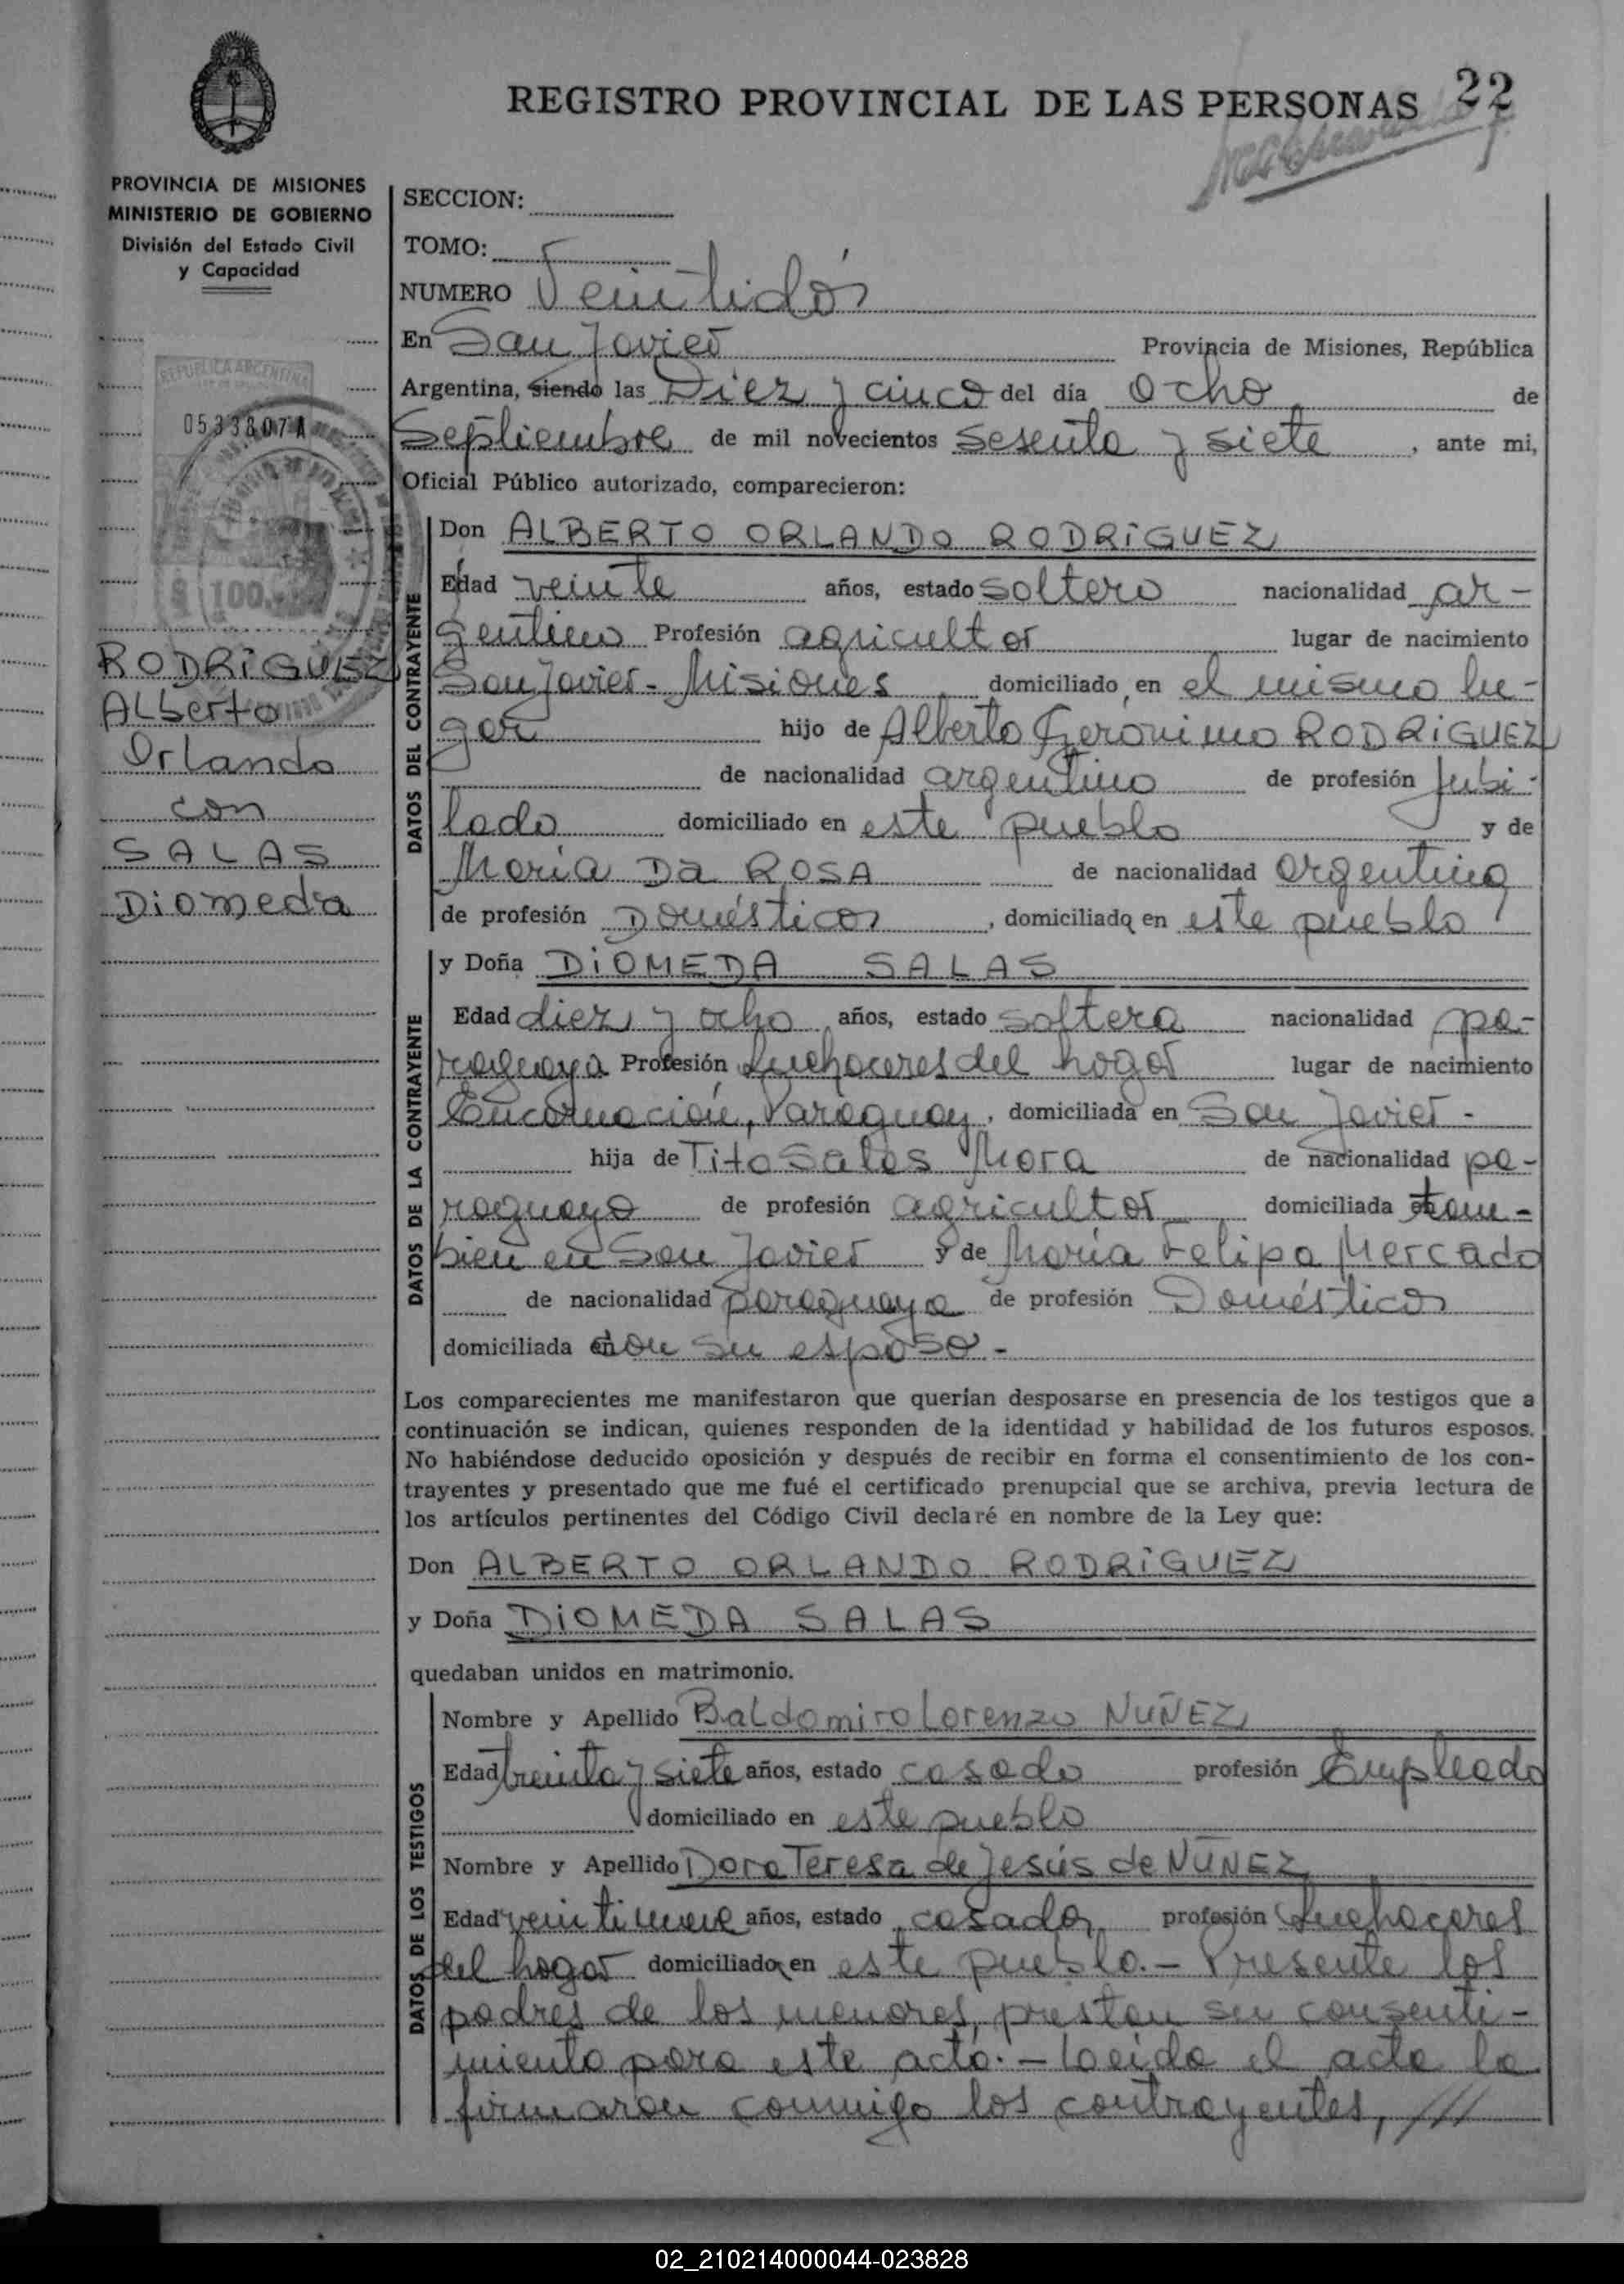 REGISTRO PROVINCIAL DE LAS PERSONAS 22
PROVINCIA DE MISIONES
MINISTERIO DE GOBIERNO
División del Estado Civil
y Capacidad
REPUBLICA ARGENTINA
05338074
$ 100
RODRíGUEZ
Alberto
Orlando
con
SALAS
Diomeda
SECCION:
TOMO:
NUMERO Veintidós
En San Javier Provincia de Misiones, República
Argentina, siendo las Diez y cinco del día Ocho de
Septiembre de mil novecientos Sesenta y siete, ante mi,
Oficial Público autorizado, comparecieron:
DATOS DEL CONTRAYENTE
Don ALBERTO ORLANDO RODRíGUEZ
Edad veinte años, estado soltero nacionalidad ar-
gentino Profesión agricultor lugar de nacimiento
San Javier - Misiones domiciliado en el mismo lu-
gar hijo de Alberto Gerónimo RODRíGUEZ
de nacionalidad argentino de profesión Jubi-
lado domiciliado en este pueblo y de
María Da ROSA de nacionalidad argentina
de profesión Domésticos, domiciliada en este pueblo
DATOS DE LA CONTRAYENTE
y Doña DiOMEDA SALAS
Edad diez y ocho años, estado soltera nacionalidad pa-
raguaya Profesión Quehaceres del hogar lugar de nacimiento
Encarnación, Paraguay, domiciliada en San Javier -
hija de Tito Salas Mora de nacionalidad pa-
raguayo de profesión agricultor domiciliada tam-
bien en San Javier y de María Felipa Mercado
de nacionalidad paraguaya de profesión Domésticos
domiciliada con su esposo -
Los comparecientes me manifestaron que querían desposarse en presencia de los testigos que a
continuación se indican, quienes responden de la identidad y habilidad de los futuros esposos.
No habiéndose deducido oposición y después de recibir en forma el consentimiento de los con-
trayentes y presentado que me fué el certificado prenupcial que se archiva, previa lectura de
los artículos pertinentes del Código Civil declaré en nombre de la Ley que:
Don ALBERTO ORLANDO RODRíGUEZ
y Doña DiOMEDA SALAS
quedaban unidos en matrimonio.
DATOS DE LOS TESTIGOS
Nombre y Apellido Baldomiro Lorenzo NUÑEZ
Edad treinta y siete años, estado casado profesión Empleado
domiciliado en este pueblo
Nombre y Apellido Dora Teresa de Jesús de NUÑEZ
Edad veintinueve años, estado casada, profesión Quehaceres
del hogar domiciliada en este pueblo. - Presente los
padres de los menores, prestan su consenti-
miento para este acto. - Leida el acta la
firmaron conmigo los contrayentes, ///
02_210214000044-023828